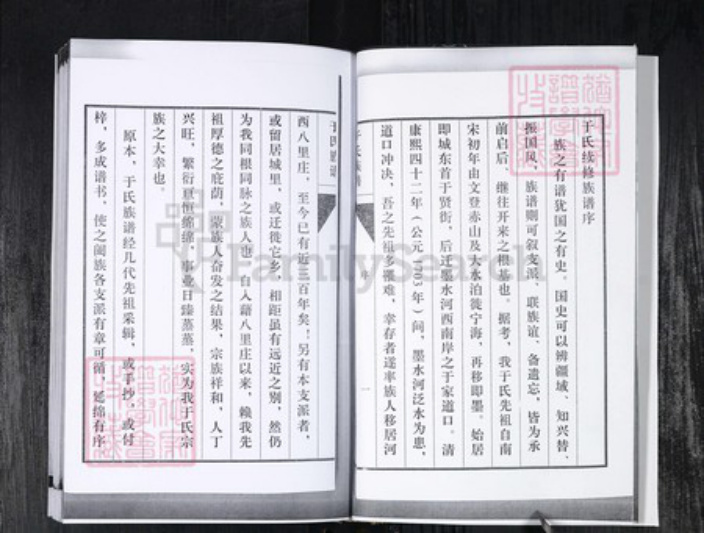 于氏续修族谱序
族之有谱犹国之有史。国史可以辨疆域、知兴替、
振国风,族谱则可叙支派、联族谊、备遗忘,皆为承
前启后、继往开来之根基也。据考,我于氏先祖自南
宋初年由文登赤山及大水泊徙宁海,再移即墨。始居
即城东首于贤街,后迁墨水河西南岸之于家道口。清
康熙四十二年(公元1703年)间,墨水河泛水为患,
道口冲决,吾之先祖多罹难,幸存者遂率族人移居河
于氏族谱
序
一
于氏族谱
西八里庄,至今已有近三百年矣!另有本支派者,
或留居城里,或迁徙它乡,相距虽有远近之别,然仍
为我同根同脉之族人也。自入藉八里庄以来,赖我先
祖厚德之庇荫,蒙族人奋发之结果,宗族祥和,人丁
兴旺,繁衍亘恒绵绵,事业日臻蒸蒸,实为我于氏宗
族之大幸也。
原本,于氏族谱经几代先祖采辑,或手抄,或付
梓,多成谱书,使之阖族各支派有章可循,延绵有序
FamilySearch